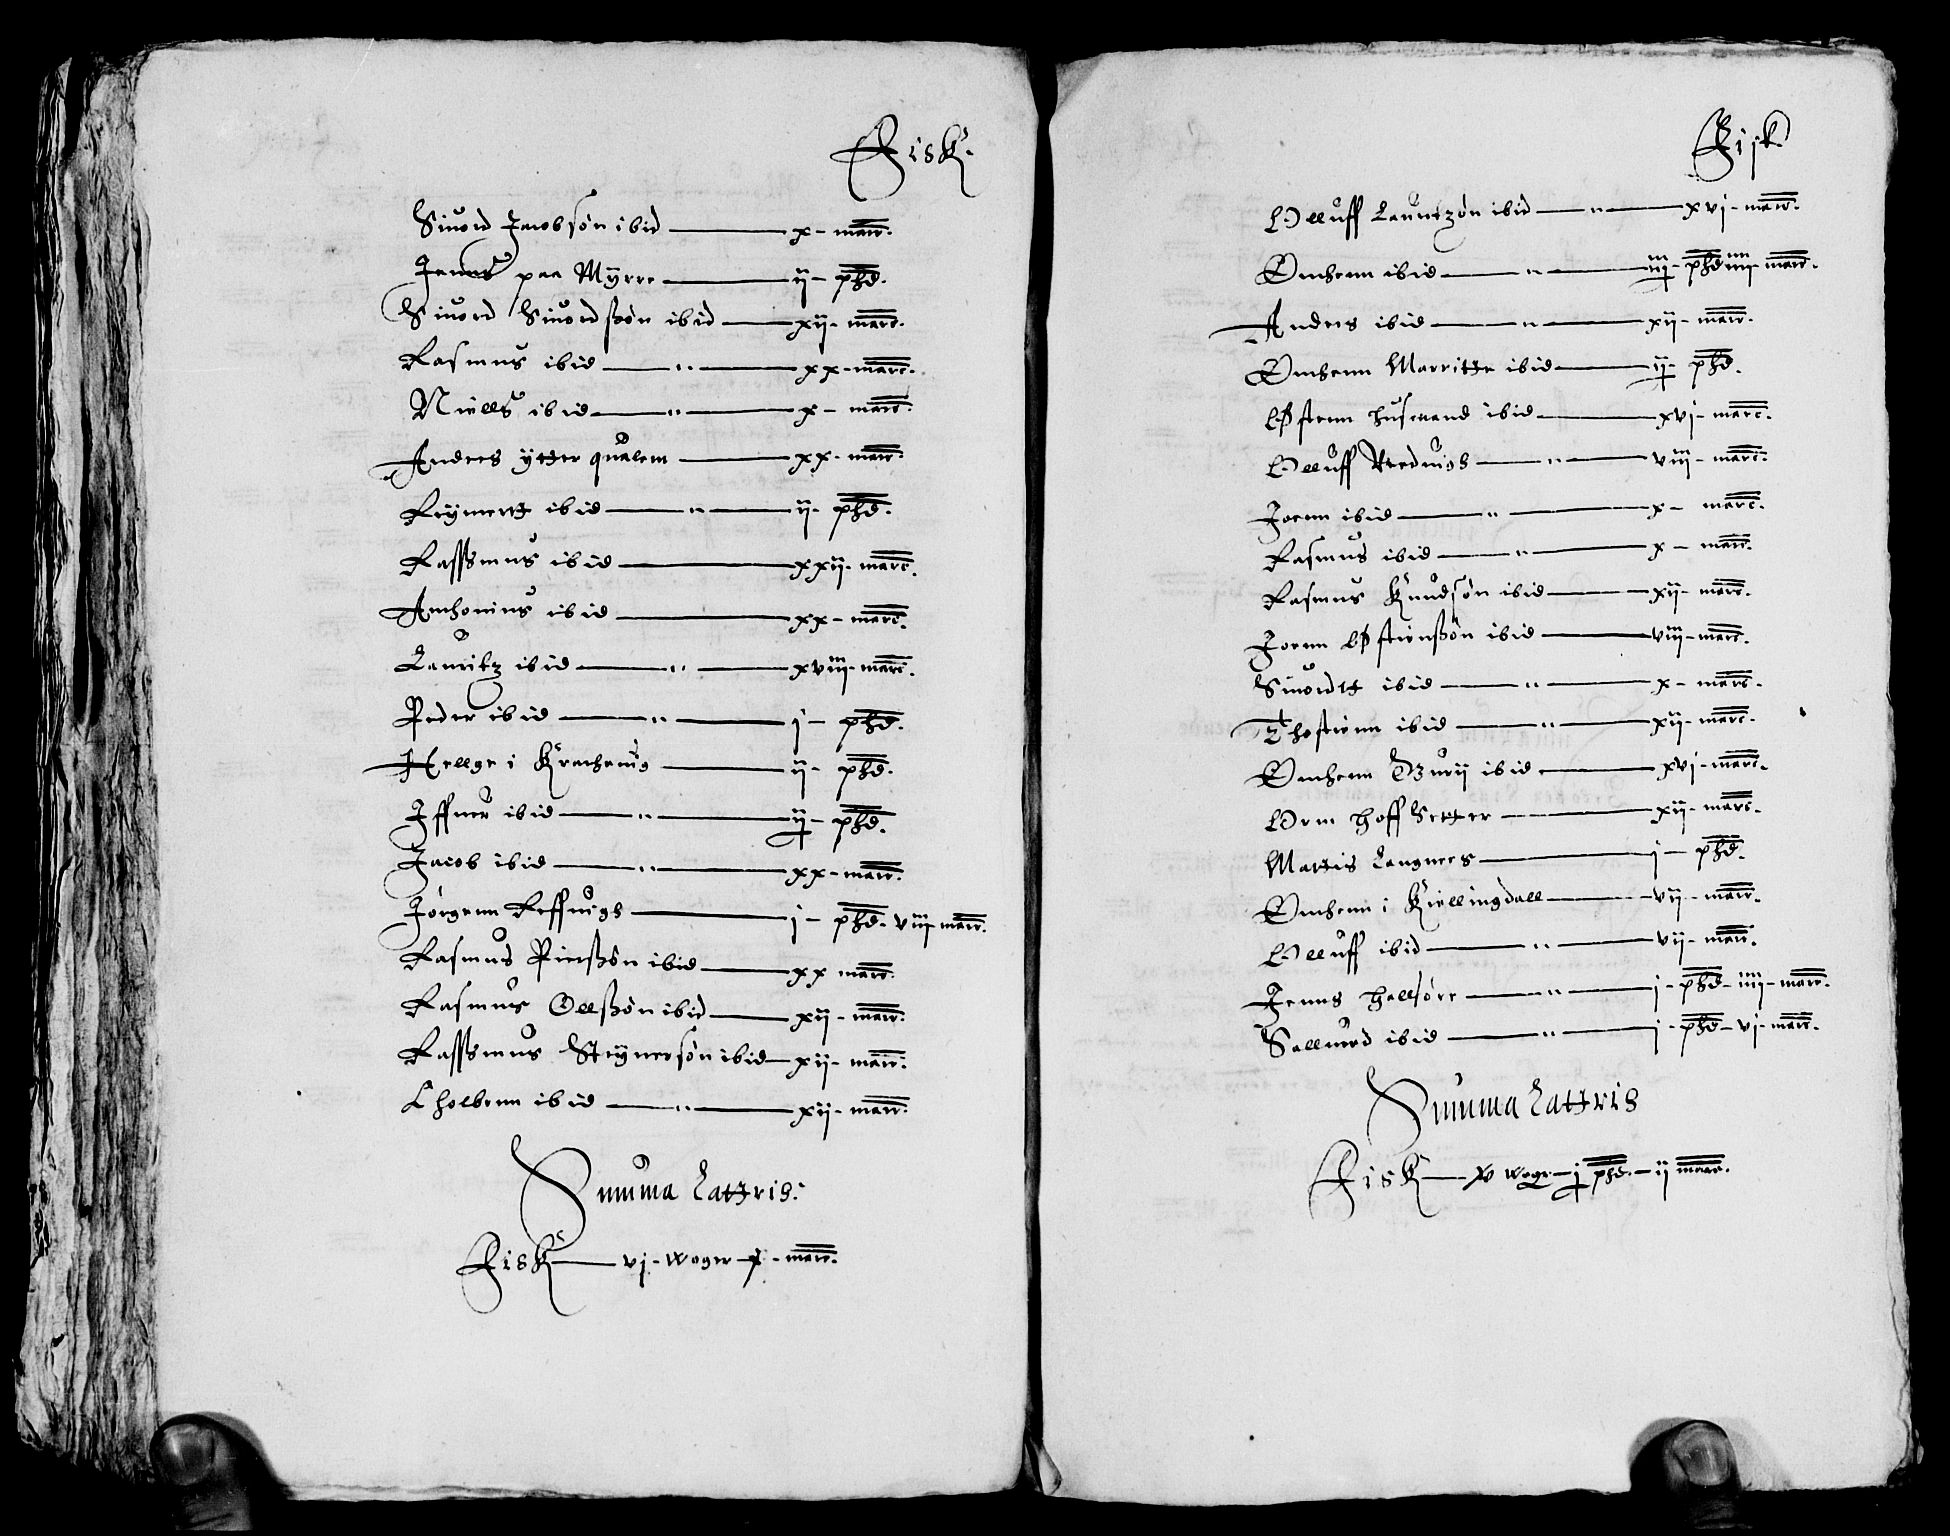 Fisk.
Siuord Jacobsøn ibid — x - marc.
Jenns paa Myrre — ij - phd.
Siuord Siuordssøn ibid — xij - marc.
Rasmus ibid — " — xx - marc.
Niells ibid — " — x - marc.
Anders ytter qualem — xx - marc.
Reymertt ibid — " — ij - phd.
Rassmus ibid — xxij - marc.
Anthonius ibid — xx - marc.
Lauritz ibid — " — xviij - marc.
Peder ibid — " — j - phd.
Hellge i — ij - phd.
Iffuer ibid — " — ij - phd.
Jacob ibid — " — xx - marc.
Jørgenn Reffuigh — j - phd. viij - marc.
Rasmus Pierssøn ibid — xx marc.
Rasmus Ollssøn ibid — xij - marc.
Rassmus Steynersøn ibid — xij - marc.
Kholbenn ibid — " — xij - marc.
Summa Lattris:
Fisk — vj - woger - x - marc.
Fisk
Olluff Lauritzøn ibid — " — xvj - marc.
Enckenn ibid — " — iij - phd iiij - marc.
Anders ibid — " — xij - marc.
Enckenn Marritte ibid — ij - phd.
Østenn husmand ibid — xvj - marc.
Olluff — " — viij - marc.
Joenn ibid — " — x - marc.
Rasmus ibid — " — x - marc.
Rasmus Knudsøn ibid — xij - marc.
Joenn Østenssøn ibid — viij - marc.
Siuordtt ibid — " — x - marc.
Thostenn ibid — " — xij - marc.
Enckenn Gurij ibid — xvj - marc.
Orm Hoffsetter — xij - marc.
Mattis Langnes — j - phd.
Enckenn i Kiellingdall — vij - marc.
Olluff ibid — " — vij - marc.
Jenns — " — j - phd - iiij - marc.
Salluerd ibid — " — j - phd - vj - marc.
Summa Lattris
Fisk — v woger - j phd. - ij marc.